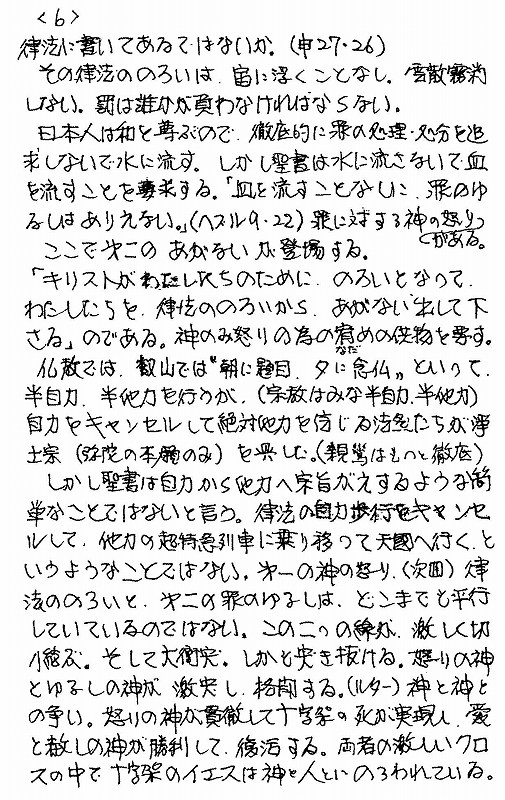 <6>
律法に書いてあるではないか。(申27・26)
その律法ののろいは、宙に浮くことなし。雲散霧消
しない。罰は誰かが負わなければならない。
日本人は和を尊ぶので、徹底的に罪の処理・処分を追
求しないで水に流す。しかし聖書は水に流さないで血
を流すことを要求する。「血を流すことなしに、罪のゆ
るしはありえない。」(ヘブル9・22) 罪に対する神の怒り
がある。
ここで第二の あがない が登場する。
「キリストがわたしたちのために、のろいとなって、
わたしたちを、律法ののろいから、あがない出して下
さる」のである。神のみ怒りの為の宥めの供物を要す。
なだ
仏教では、叡山では"朝に題目、夕に念仏"といって、
半自力、半他力を行うが、(宗教はみな半自力、半他力)
自力をキャンセルして絶対他力を信じる法然たちが浄
土宗 (弥陀の本願のみ) を興した。(親鸞はもっと徹底)
しかし聖書は自力から他力へ宗旨がえするような簡
単なことではないと言う。律法の自力歩行をキャンセ
ルして、他力の超特急列車に乗り移って天国へ行く、と
いうようなことではない。第一の神の怒り、(次回) 律
法ののろいと、第二の罪のゆるしは、どこまでも平行
していているのではない。この二つの線が、激しく切
り結ぶ。そして大衝突。しかと突き抜ける。怒りの神
とゆるしの神が、激突し、格闘する。(ルター) 神と神と
の争い。怒りの神が貫徹して十字架の死が実現し、愛
と赦しの神が勝利して、復活する。両者の激しいクロ
スの中で十字架のイエスは神と人とにのろわれている。